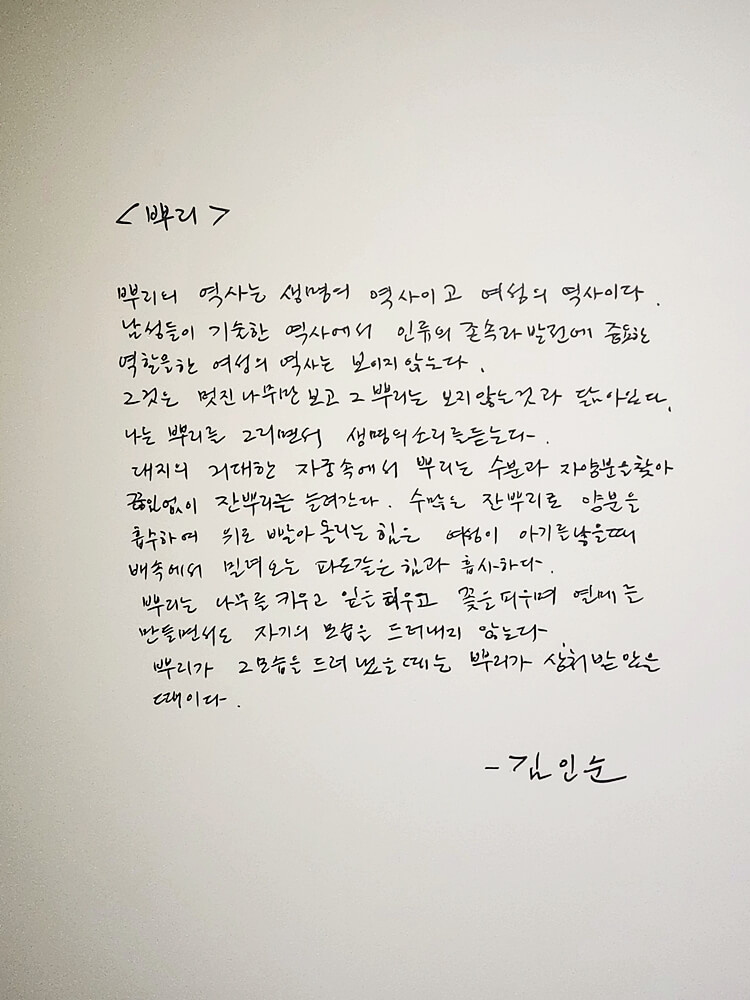 <뿌리>
뿌리의 역사는 생명의 역사이고 여성의 역사이다.
남성들이 기술한 역사에서 인류의 존속과 발전에 중요한
역할을한 여성의 역사는 보이지 않는다.
그것은 멋진 나무만 보고 그 뿌리는 보지 않는것과 닮아있다.
나는 뿌리를 그리면서 생명의 소리를 듣는다.
대지의 거대한 자궁속에서 뿌리는 수분과 자양분을 찾아
끊임없이 잔뿌리를 늘려간다. 수많은 잔뿌리로 양분을
흡수하여 위로 빨아 올리는 힘은 여성이 아기를 낳을때
배속에서 밀려오는 파도같은 힘과 흡사하다.
뿌리는 나무를 키우고 잎을 틔우고 꽃을 피우며 열매를
만들면서도 자기의 모습은 드러내지 않는다.
뿌리가 그 모습을 드러 냈을 때는 뿌리가 상처 받았을
때이다.
-김인순